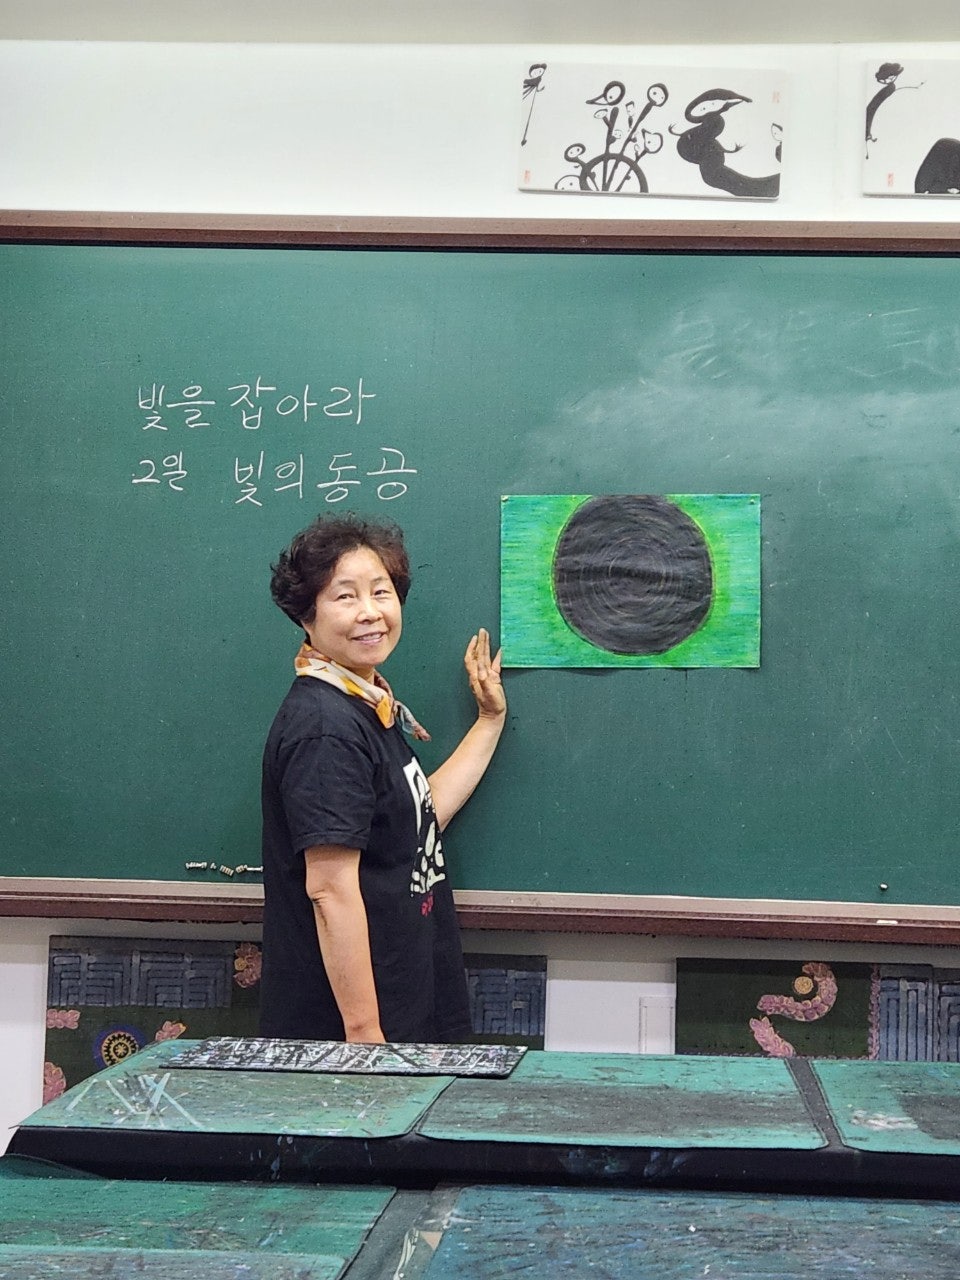 빛을 잡아라
2월 빛의 동공